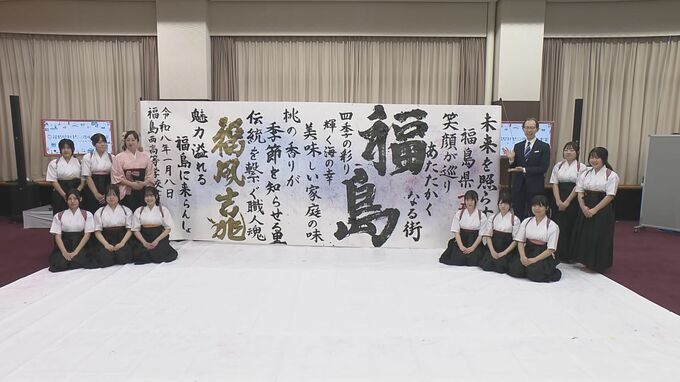 未来を照ら
福島県
笑顔が巡り
あたたかく
なる街
福島
四季の彩り
輝く海の幸
美味しい家庭の味
桃の香りが
季節を知らせる
伝統を繋ぐ職人魂
福風吉兆
魅力溢れる
福島に来らんしょ
令和八年一月八日
福島西高等学校